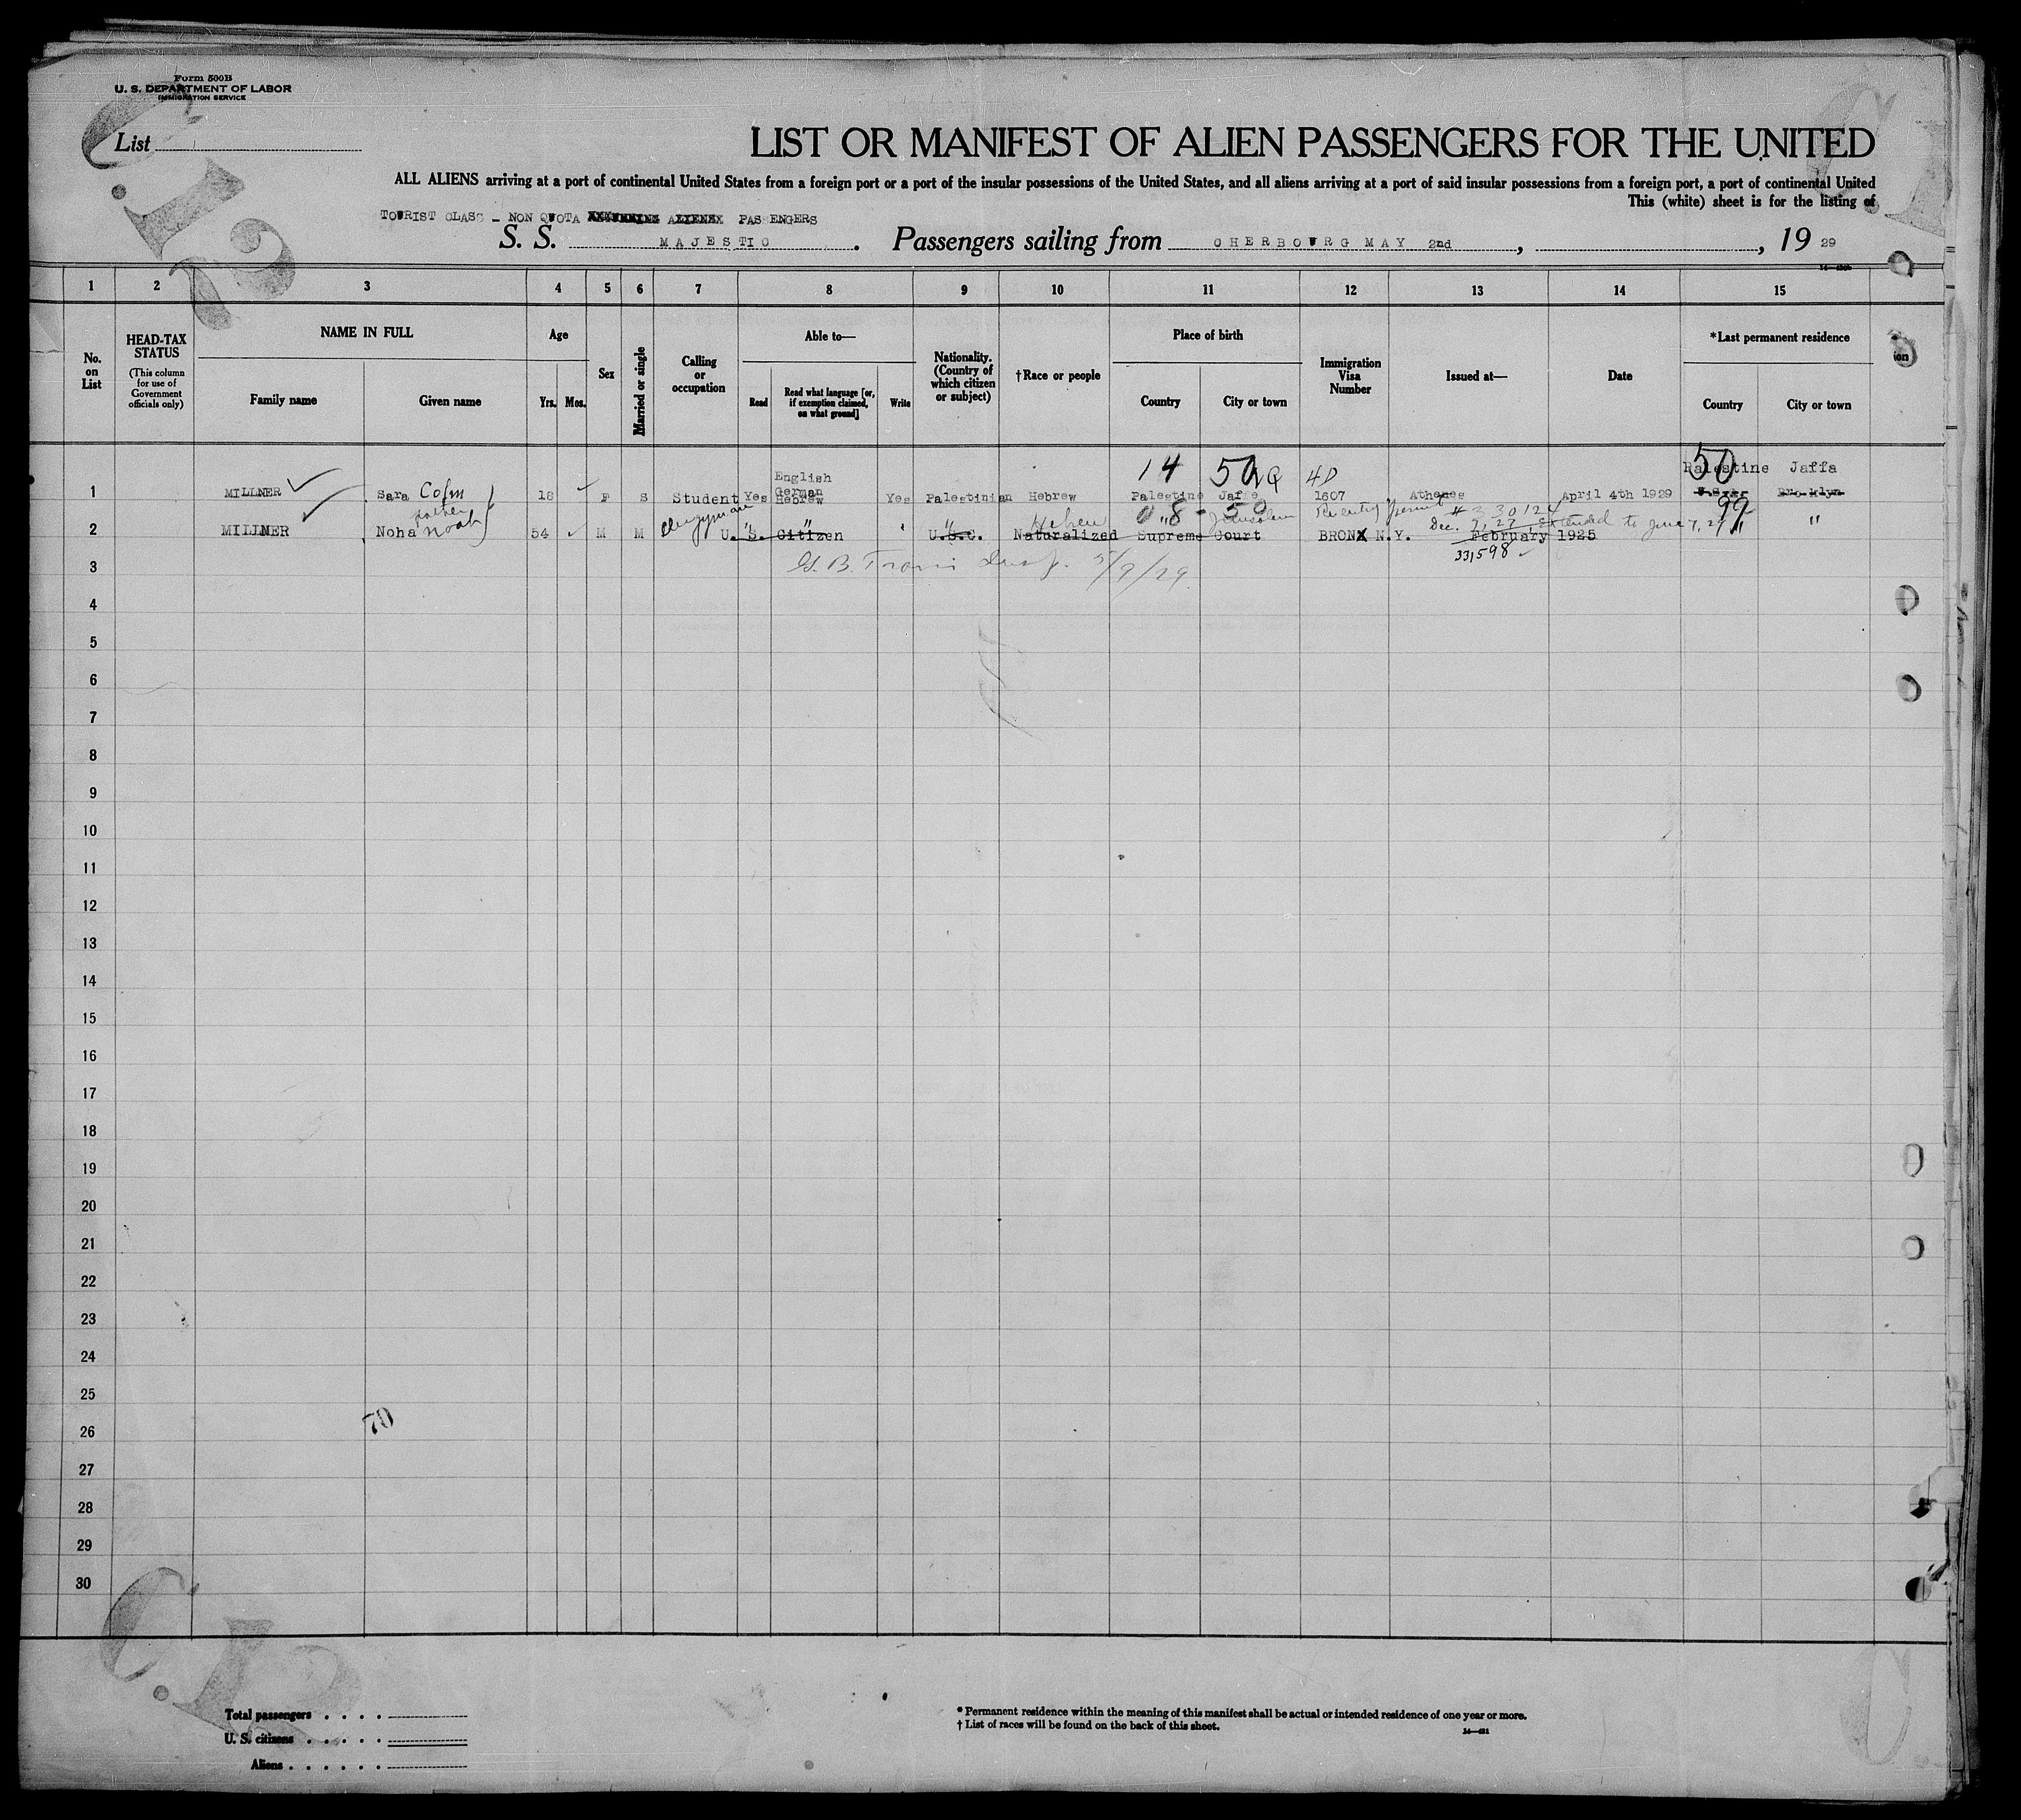 Form 500B
U. S. DEPARTMENT OF LABOR
IMMIGRATION SERVICE
List
LIST OR MANIFEST OF ALIEN PASSENGERS FOR THE UNITED
ALL ALIENS arriving at a port of continental United States from a foreign port or a port of the insular possessions of the United States, and all aliens arriving at a port of said insular possessions from a foreign port, a port of continental United
This (white) sheet is for the listing of
TOURIST CLASS - NON QUOTA PASSENGERS
S. S. MAJESTIC. Passengers sailing from CHERBOURG MAY 2nd, , 19 29
1 2 3 4 5 6 7 8 9 10 11 12 13 14 15
No. on List
HEAD-TAX STATUS
(This column for use of Government officials only)
NAME IN FULL
Family name
Given name
Age
Yrs. Mos.
Sex
Married or single
Calling or occupation
Able to—
Read
Read what language [or, if exemption claimed, on what ground]
Write
Nationality. (Country of which citizen or subject)
†Race or people
Place of birth
Country
City or town
Immigration Visa Number
Issued at—
Date
*Last permanent residence
Country
City or town
14 50 NQ 4D 50
1 MILLNER Sara 18 F S Student Yes English German Hebrew Yes Palestinian Hebrew Palestine Jaffa 1607 Athenes April 4th 1929 Palestine Jaffa
father clergyman 08-50 Hebrew Jerusalem Reentry permit # 330124 99
Dec. 7, 27, extended to June 7, 29
2 MILLNER Noha Noah 54 M M " U. S. Citizen " " U.S.C. Naturalized Supreme Court BRONX N.Y. February 1925 " "
331598
5/9/29
3
4
5
6
7
8
9
10
11
12
13
14
15
16
17
18
19
20
21
22
23
24
25
26
27
28
29
30
70
Total passengers
U. S. citizens
Aliens
* Permanent residence within the meaning of this manifest shall be actual or intended residence of one year or more.
† List of races will be found on the back of this sheet.